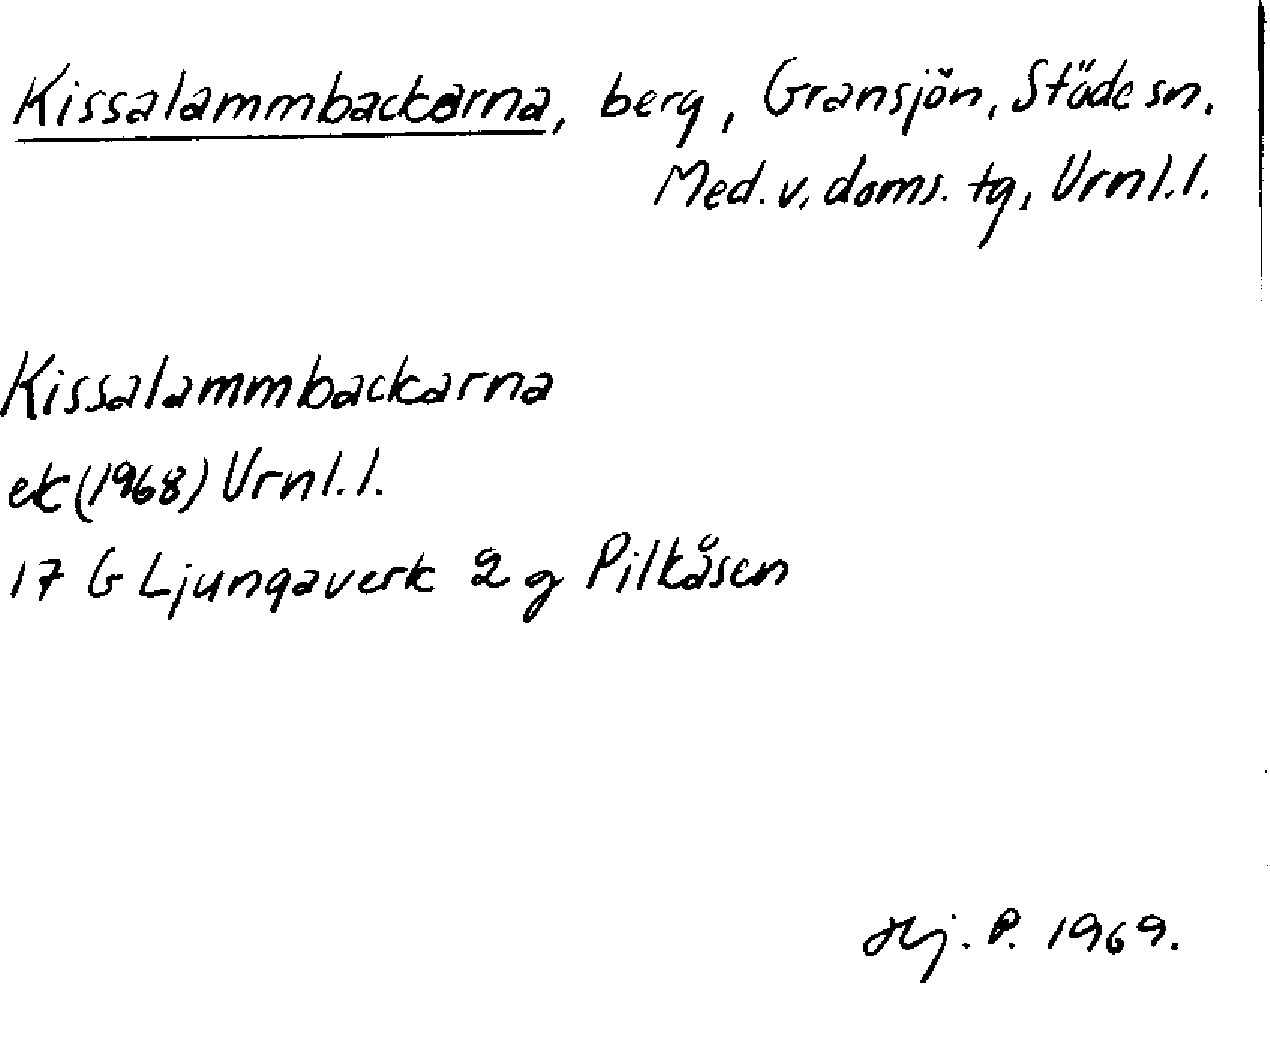 Kissalammbackarna, berg, Gransjön, Stöde sn.
Med. v. doms. tg, Vrnl.l.
Kissalammbackarna
ek (1968) Vrnl.l.
17 G Ljungaverk 2 g Pilkåsen
Hj. P. 1969.